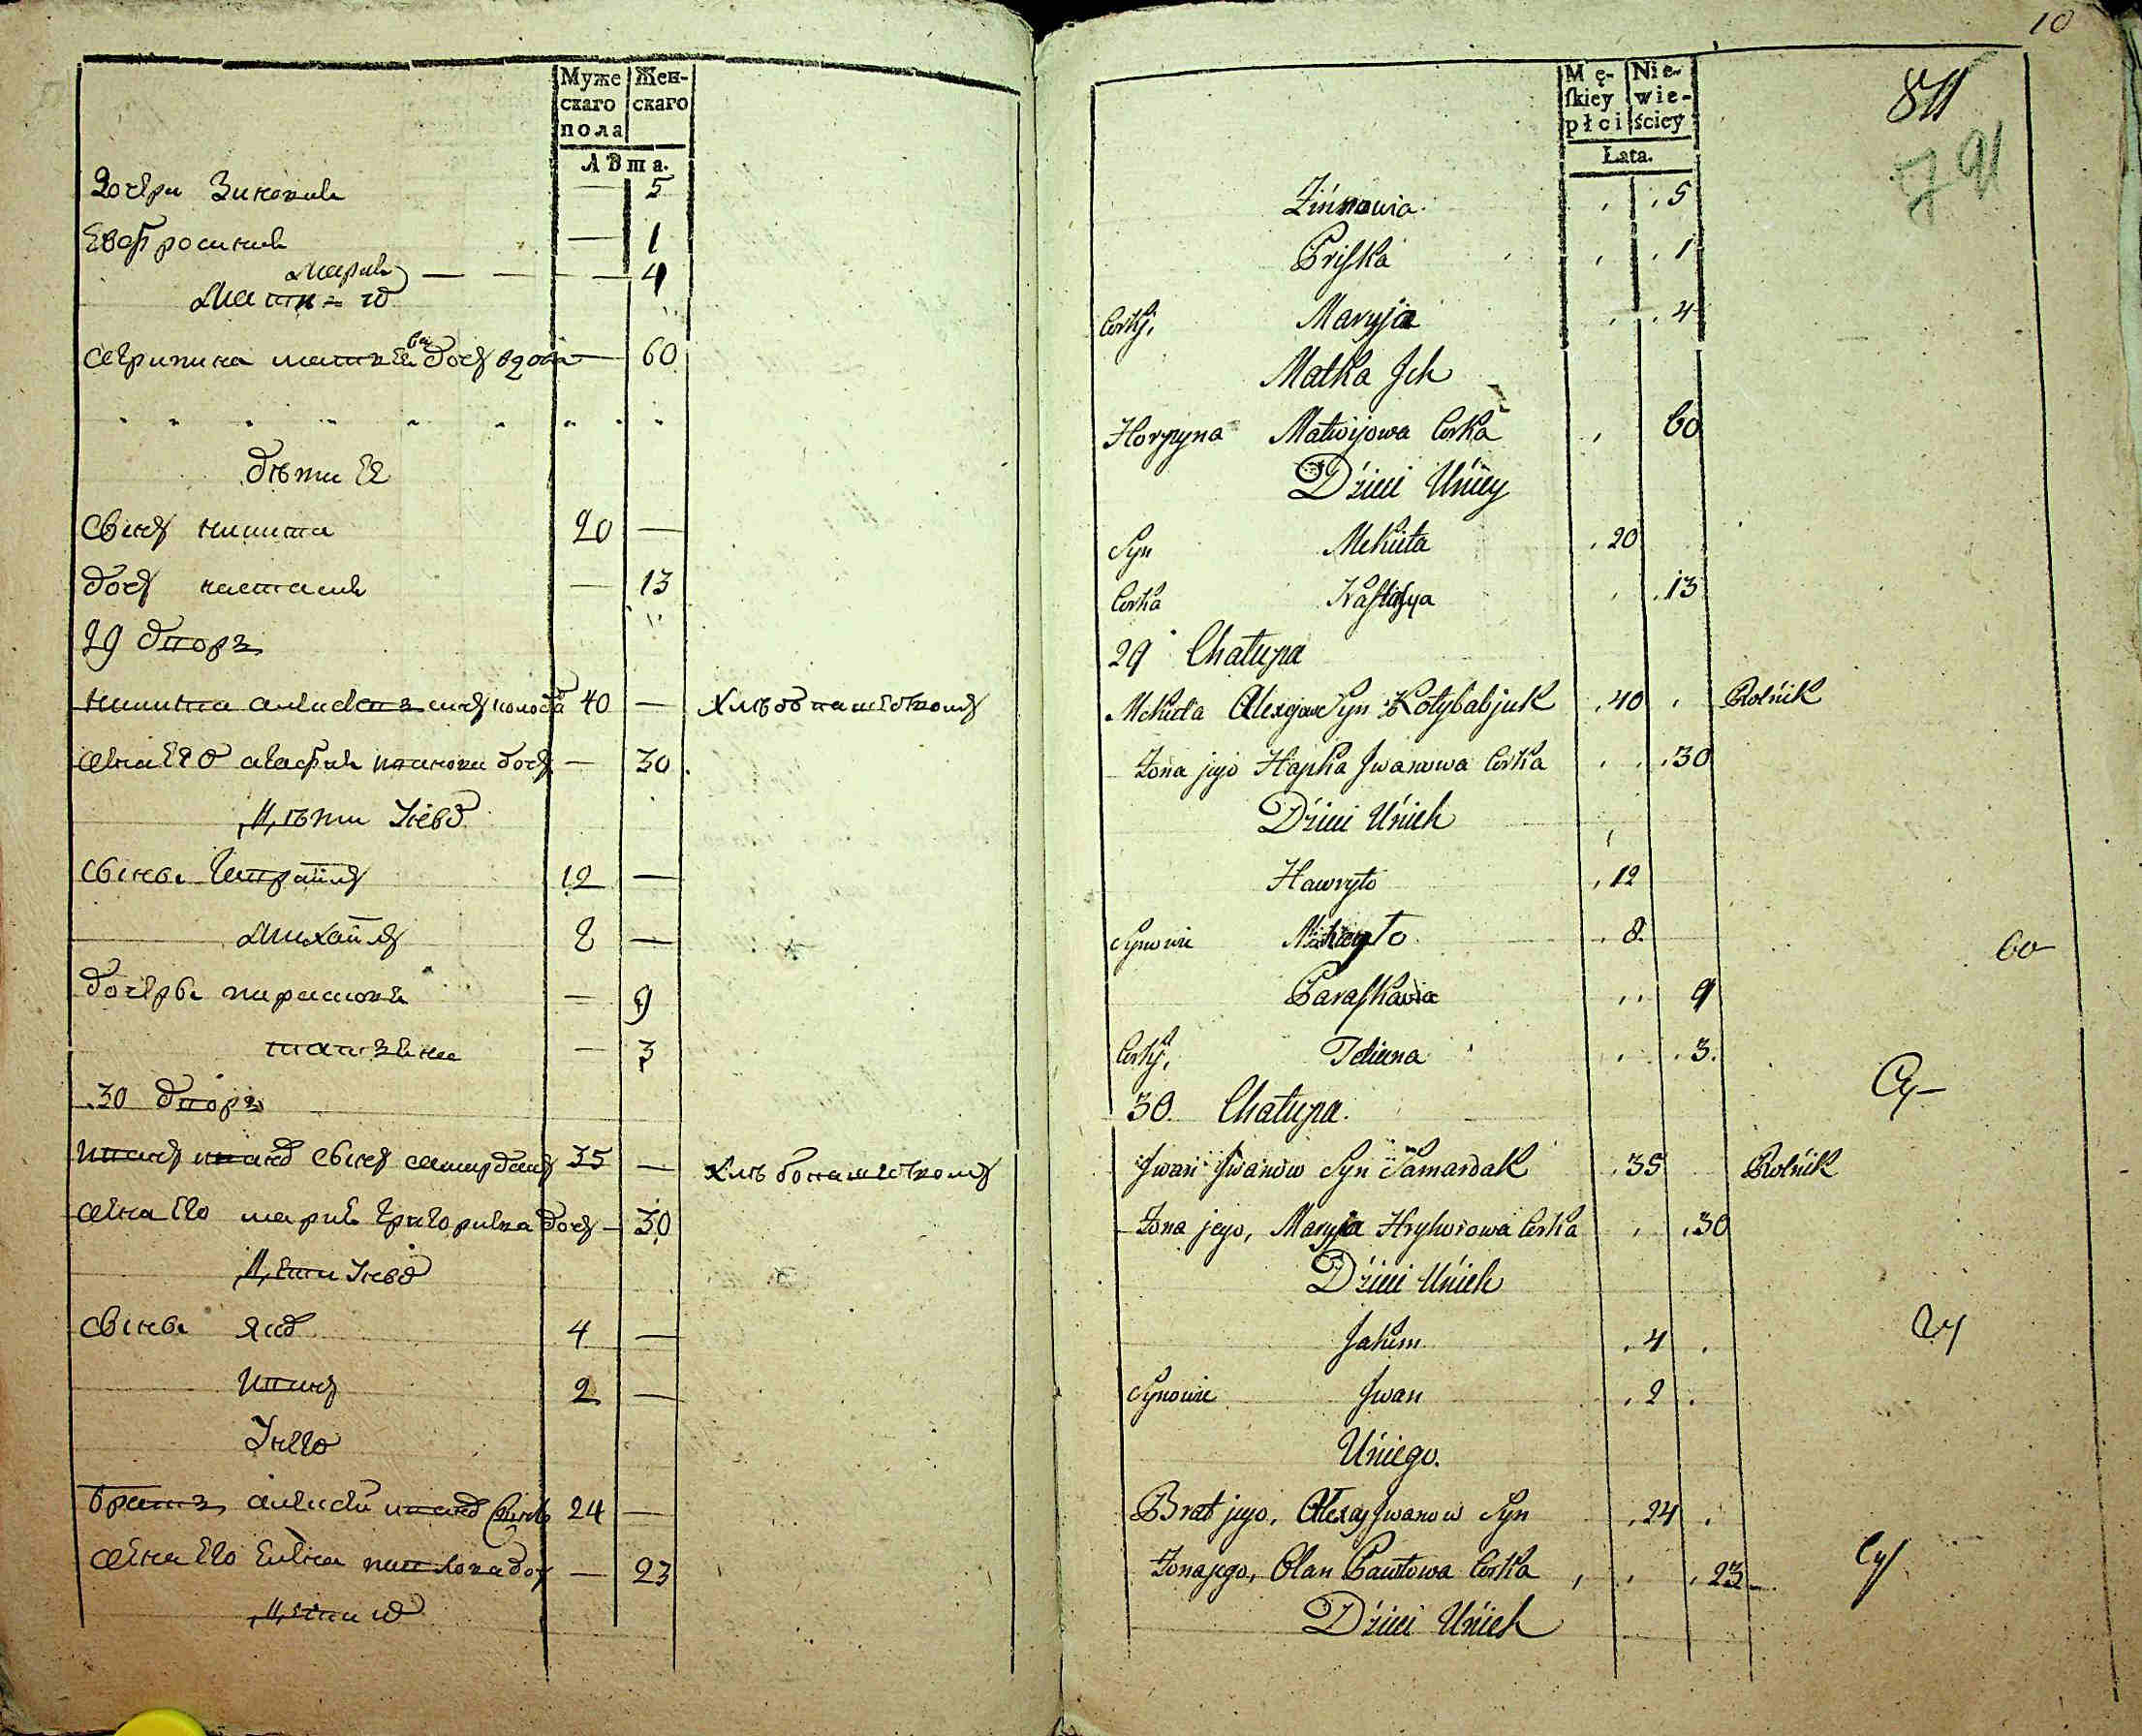 Муже
скаго
пола
Жен-
скаго
Лѣта.
Дочери Зиновия — 5
Евфросиния — 1
Мария — 4
Мати их
Агрипина матвеева дочь вдова — 60
дѣти ее
Сынъ никита 20 —
дочь настасия — 13
29 дворъ
никита алексеевъ сынъ 40 — хлѣбопашествомъ
жена его агафия иванова дочь — 30
Дѣти Ихъ
Сыны Гаврийлъ 12 —
Михайлъ 8 —
дочеры параскевия — 9
татьяна — 3
30 дворъ
иванъ иванов Сынъ самардакъ 35 — хлѣбопашествомъ
жена его мария Григорьева дочь — 30
Дети Ихъ
Сыны Яким 4 —
Иванъ 2 —
У него
братъ алексей иванов Сынъ 24 —
жена его елена павлова дочь — 23
Дети их
10
Mę-
skiey
płci
Nie-
wie-
ściey
Łata.
811
791
Zinnowia 5
Priska 1
Corky, Maryja 4
Matka Jch
Horpyna Matwijowa Corka 60
Dzieci Uniey
Syn Mekiita 20
Corka Nastasya 13
29 Chałupa
Mekieta Alexejow Syn Kotylabjuk 40 Rolnik
Zona jego Hapka Jwanowa Corka 30
Dzieci Unich
Hawryło 12
Synowie Michayło 8
Paraskawia 9
Corky, Tetiana 3
30 Chałupa.
Jwan Jwanow Syn Samardak 35 Rolnik
Zona jego, Maryja Hryhorowa Corka 30
Dzieci Unich
Jakim 4
Synowie Jwan 2
Uniego.
Brat jego, Alexey Jwanow Syn 24
Zona jego, Olan Pawłowa Corka 23
Dzieci Unich